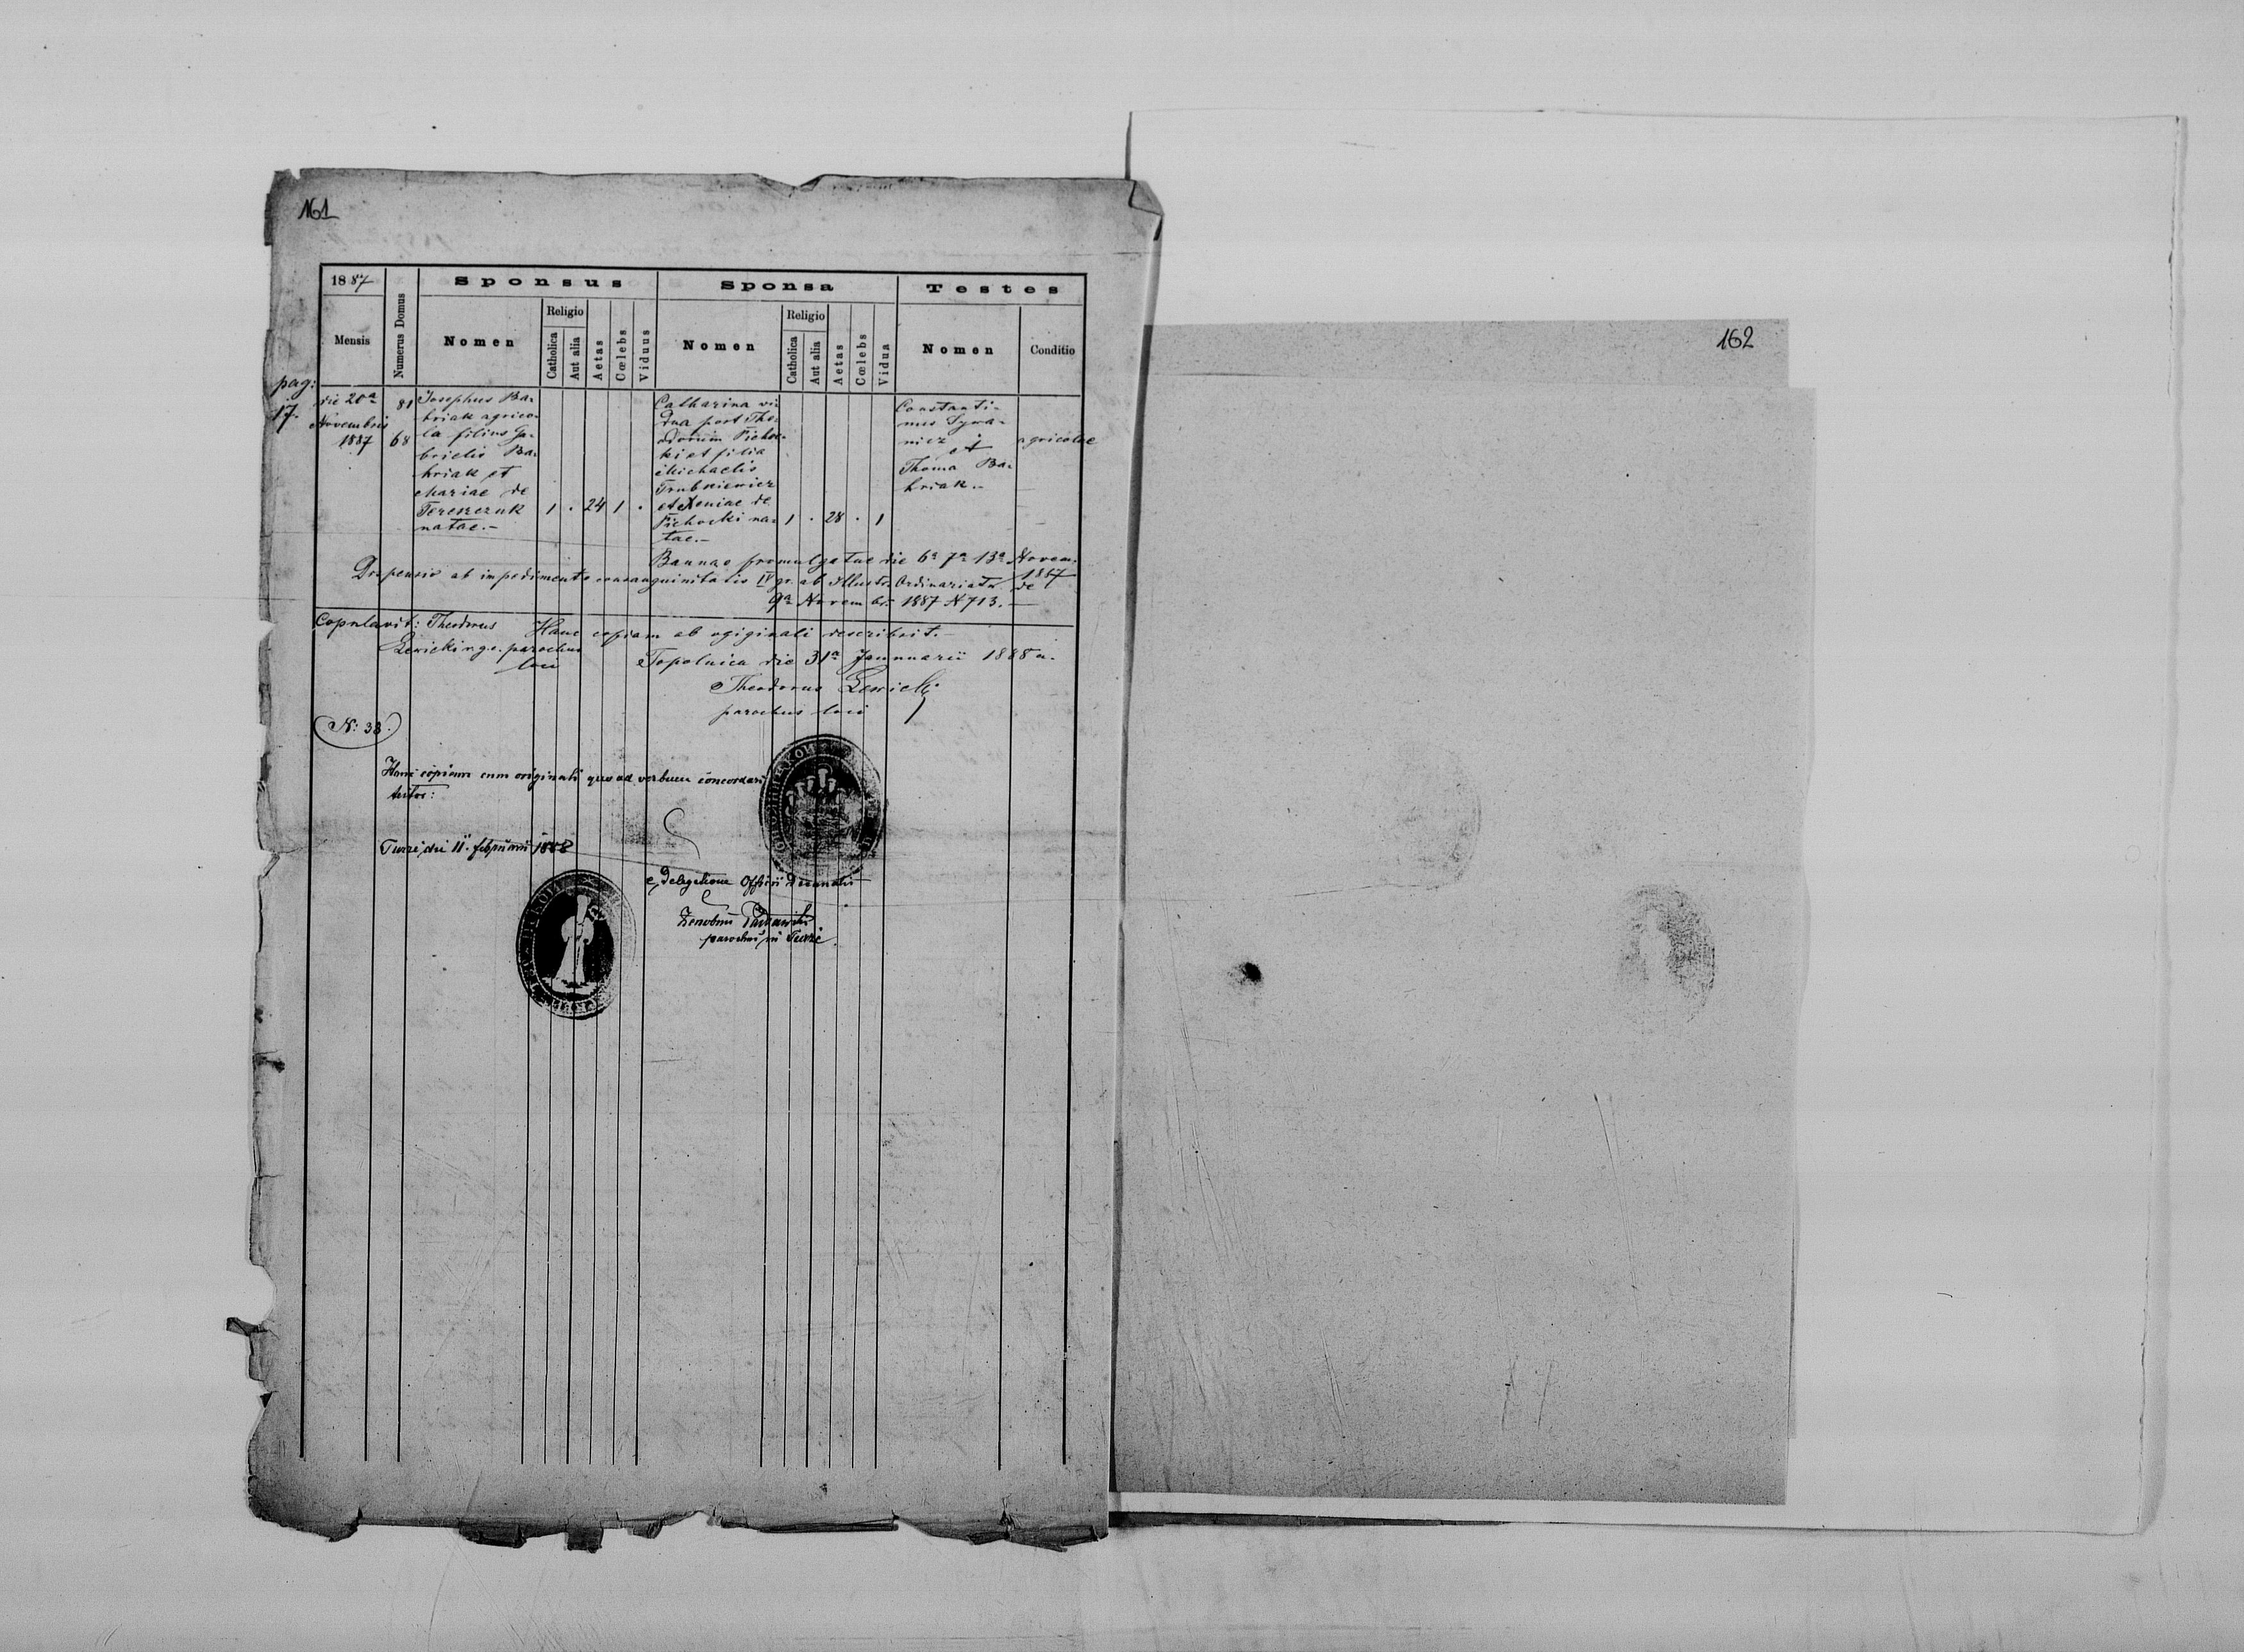 161
162
1887
Sponsus
Sponsa
Testes
Mensis
Numerus Domus
Nomen
Religio
Catholica
Aut alia
Aetas
Cœlebs
Viduus
Nomen
Religio
Catholica
Aut alia
Aetas
Cœlebs
Vidua
Nomen
Conditio
pag:
17.
die 20ª
Novembris
1887
81
68
Josephus Ba-
hriak agrico-
la filius Ga-
brielis Ba-
hriak et
Mariae de
Tereszczuk
natae.-
1 . 24 1 .
Catharina vi-
dua post The-
odorum Pichoc-
ki et filia
Michaelis
Trubkiewicz
et Xeniae de
Pichocki na-
tae.-
1 . 28 . 1
Constanti-
nus
et
Thoma Ba-
hriak.-
agricolae
Bannae promulgatae die 6ª 7ª 13ª Novem.
1887
Dispensio ab impedimento consanguinitatis IV gr. ab Illustr. Ordinariatu de
9ª Novembr. 1887 N 713.
Copulavit: Theodorus
Lewicki r.g.c. parochus
loci
Hanc copiam ab ogiginali describsit.-
Topolnica die 31ª Jannuarii 1888 a.
Theodorus Lewicki
parochus loci
N: 38.
Hanc copiam cum originali quo ad verbum concordari
testor:
Turze, die 11. februarii 1888
e Delegatione Officii Decanalis
parochus in Turze